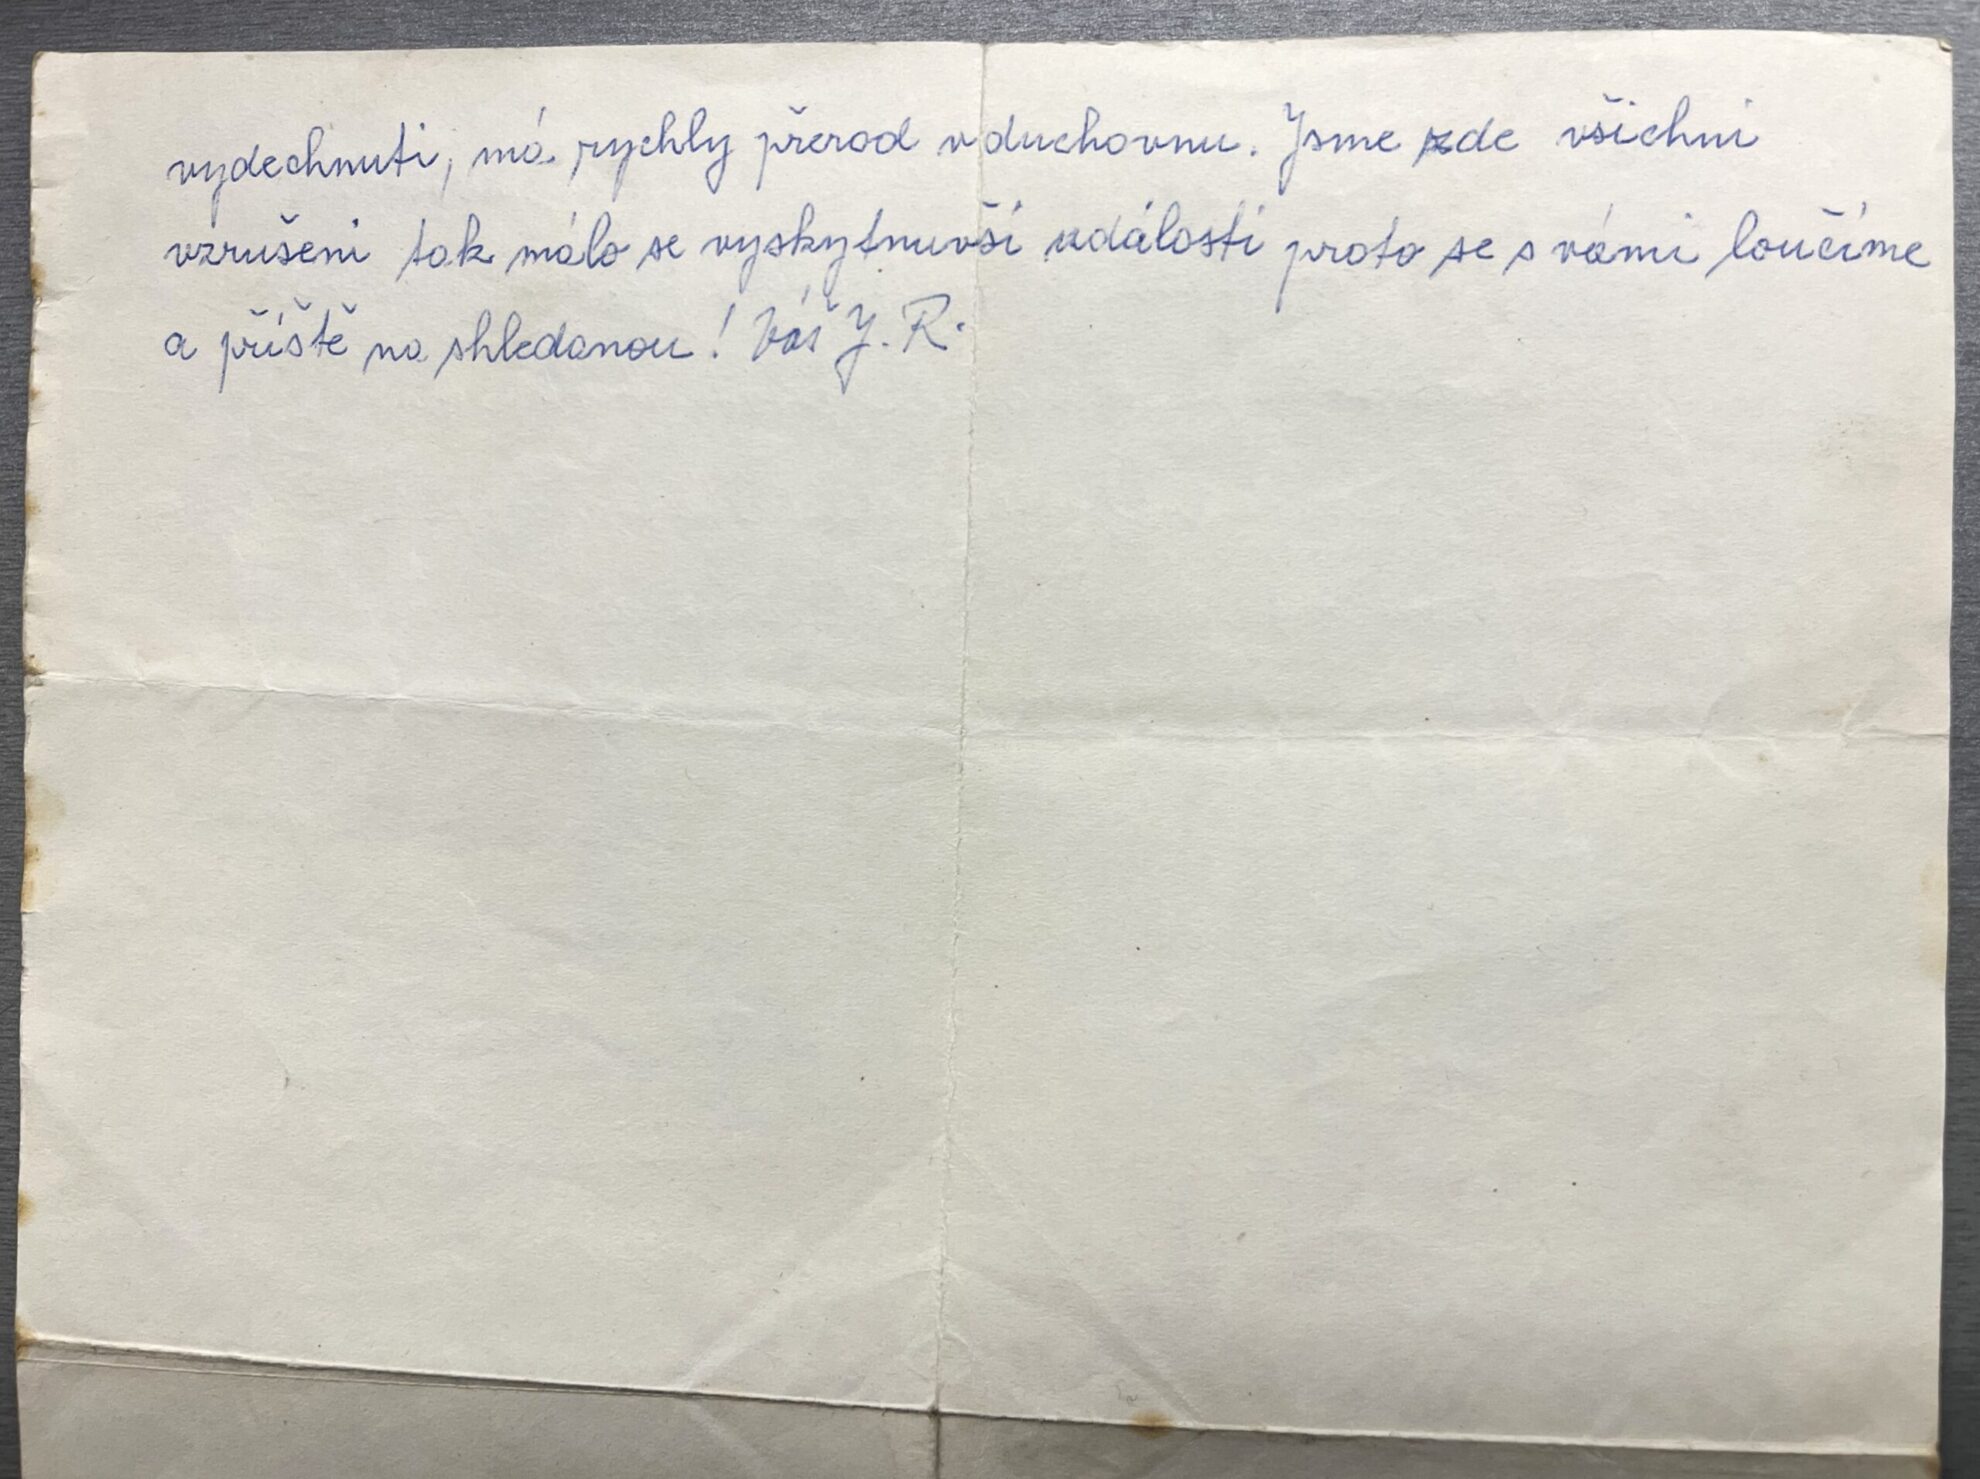 vydechnuti, má rychly přerod v duchovnu. Jsme zde všichni
vzrušeni tak málo se vyskytnuvší událostí proto se s vámi loučíme
a příště na shledanou! Váš J. R.